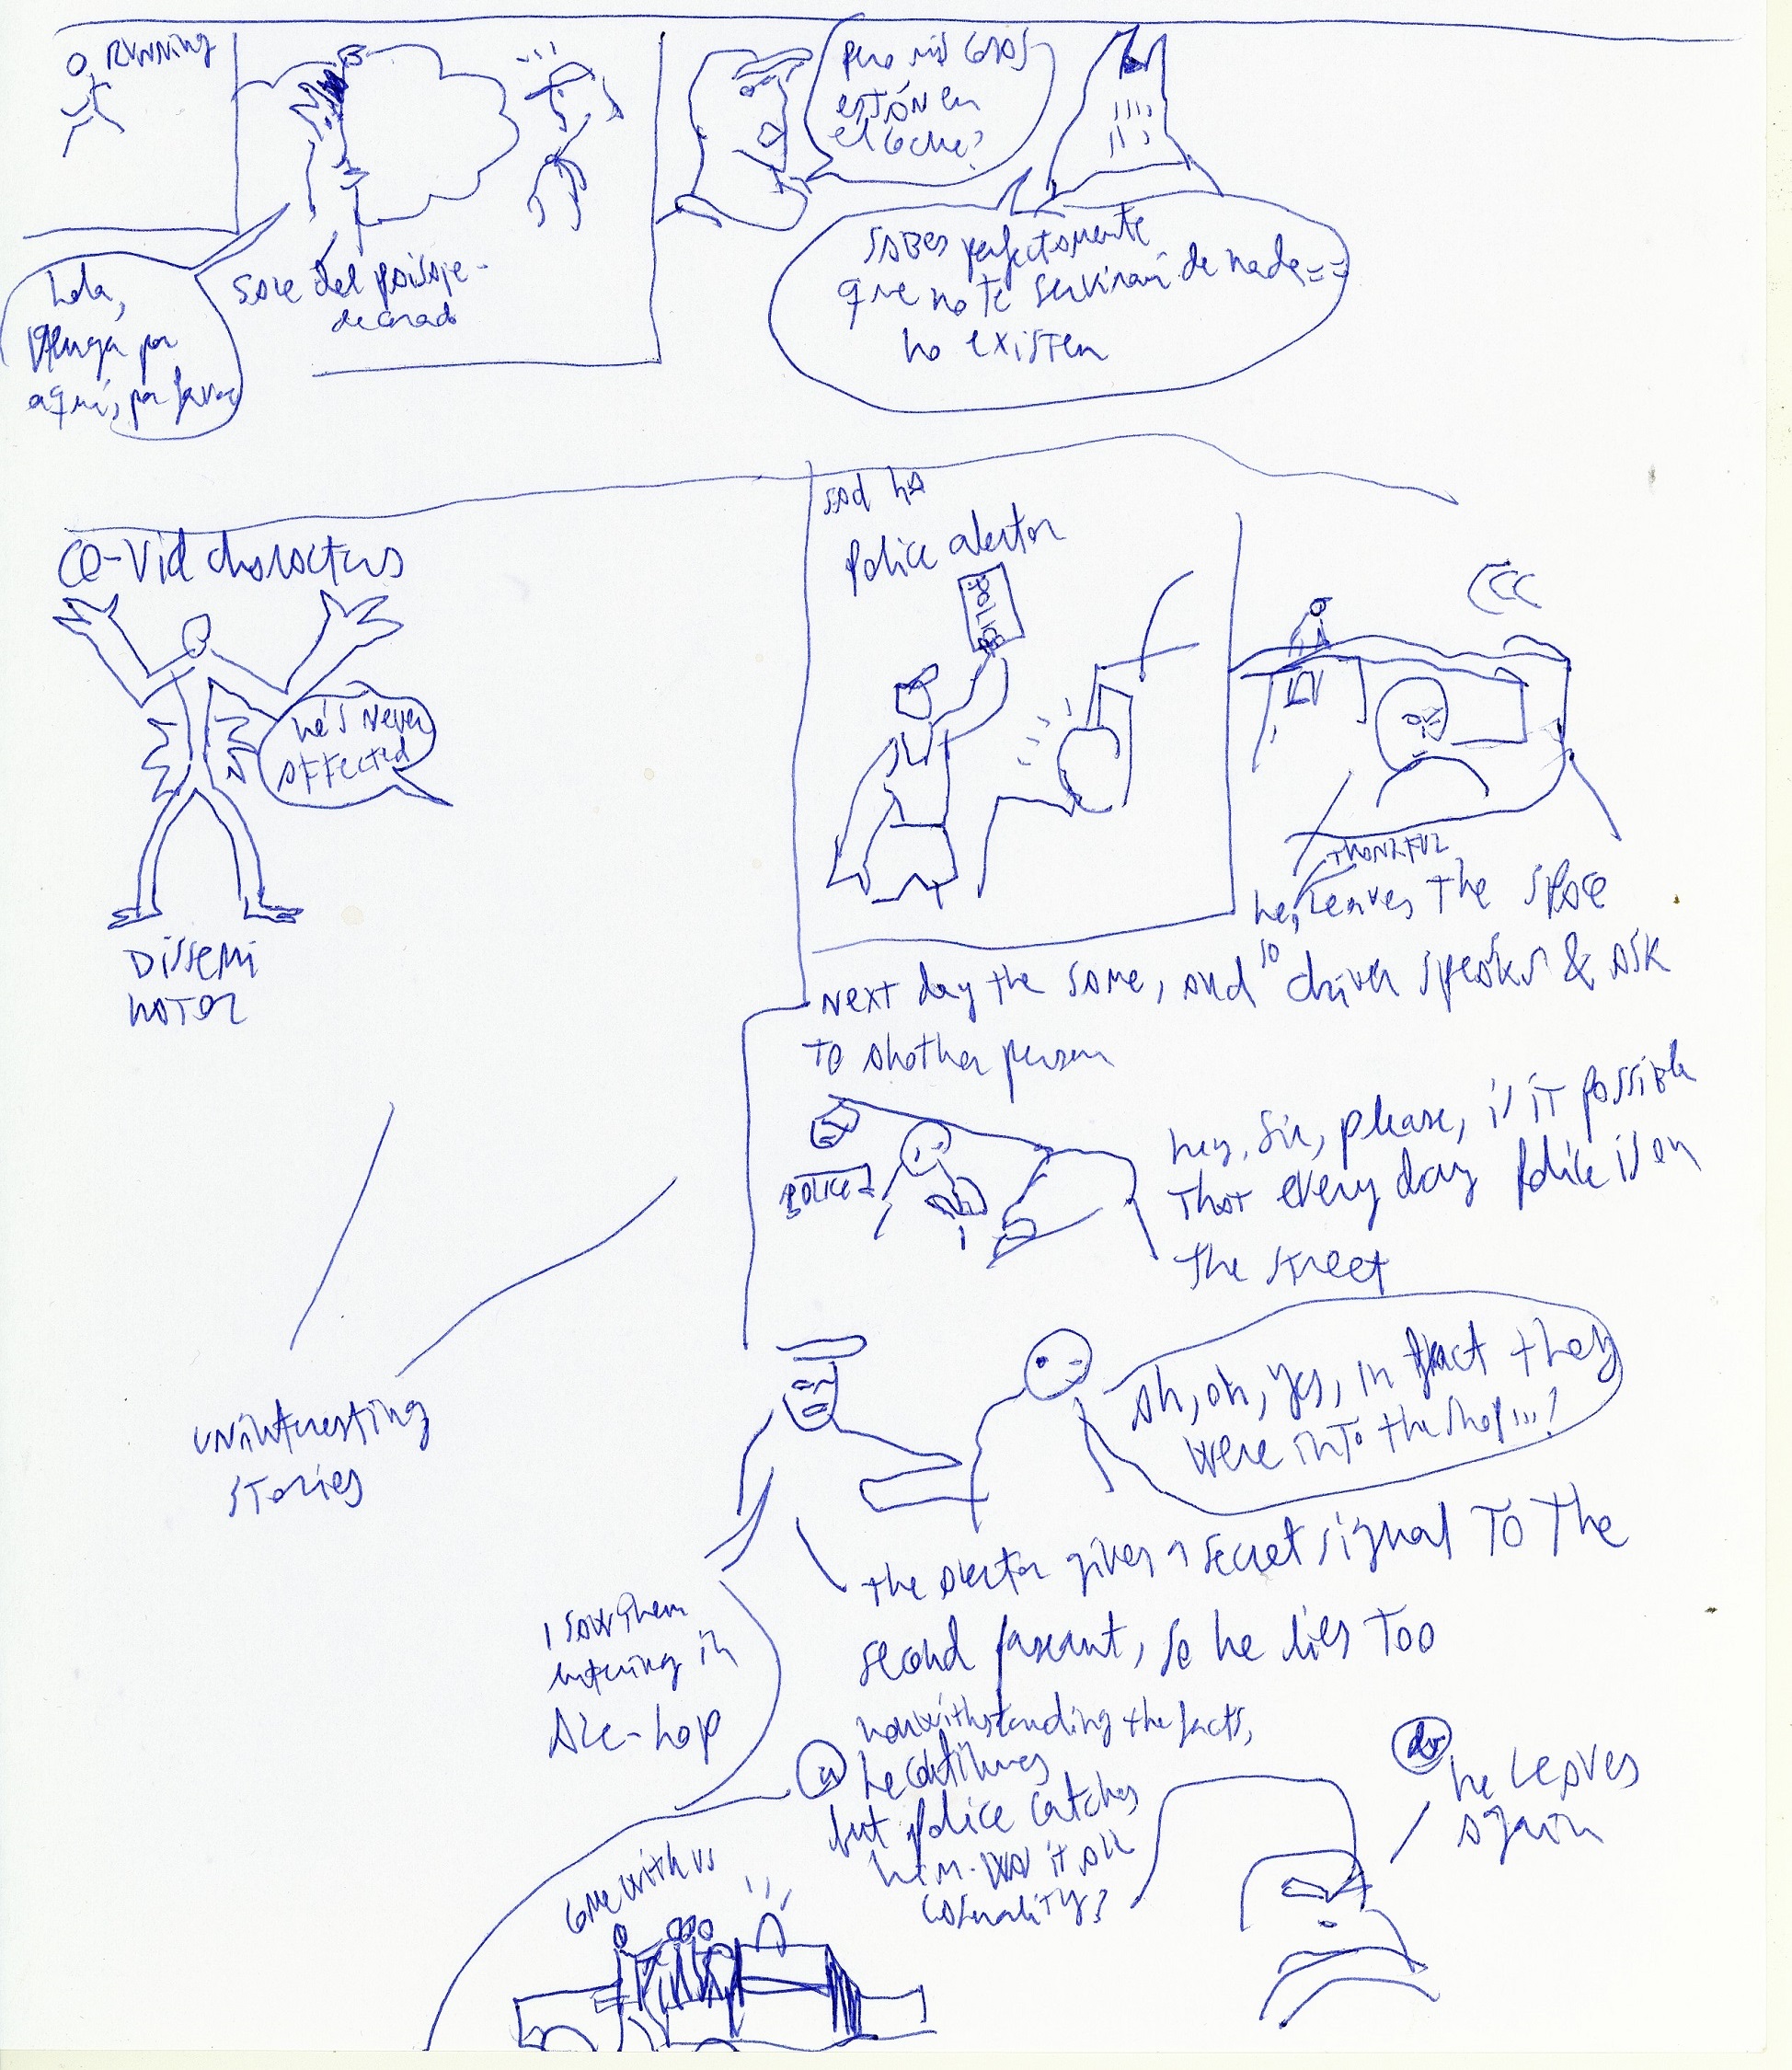 RUNNING
pero mis cosas
están en
el coche?
SABES perfectamente
que no te servirán de nada ==
no existen
Hola,
venga por
aquí, por favor
Sale del paisaje
decorado
CO-Vid characters
he's never
affected
DISSEMI
NATOR
Police alertor
POLICE
THANKFUL
he, leaves the space
Next day the same, and so driver speaks & ask
to another person
POLICE
hey, Sir, please, is it possible
that every day police is on
the street
Ah, oh, yes, in fact they
were into the shop...!
uninteresting
stories
the alertor gives a secret signal TO The
second paseant, so he lies Too
I saw them
entering in
Ale-hop
nonwithstanding the facts,
he continues
but police catches
him. Was it all
casuality?
he leaves
again
come with us